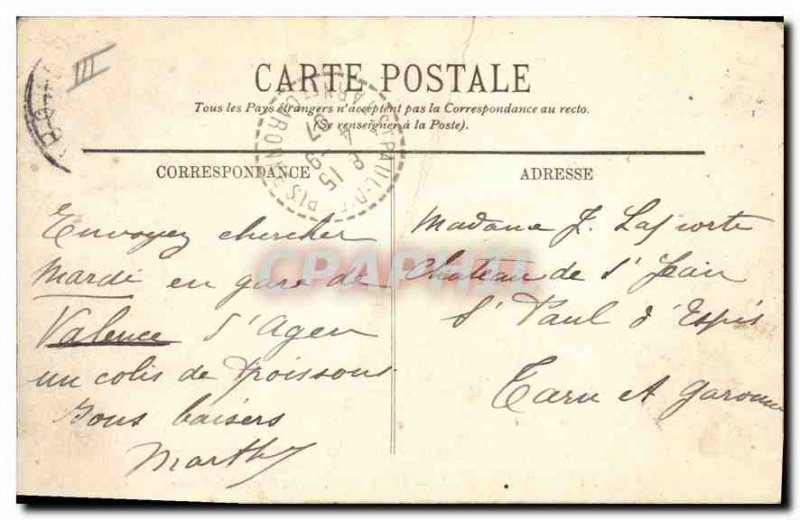 III
CARTE POSTALE
Tous les Pays étrangers n'acceptent pas la Correspondance au recto.
(Se renseigner à la Poste).
CORRESPONDANCE
Envoyez chercher
Mardi en gare de
Valence d'Agen
un colis de poissons
Bons baisers
Marthe
ADRESSE
Madame J. Laporte
Chateau de St Jean
St Paul d'Espis
Tarn et Garonne
ST PAUL-D'ESPIS
TARN-ET-GARONNE
15
8 - 4
07
CPAPHIL